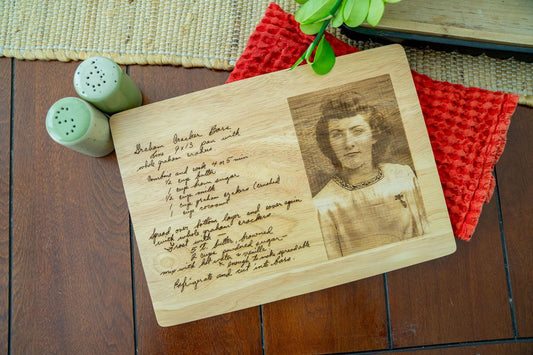 Graham Cracker Bars
Line 9x13 pan with
whole graham crackers
Combine and cook 4 or 5 min
½ cup butter
½ cup brown sugar
½ cup milk
1 cup graham crackers (crushed
1 cup coconut
Spread over bottom layer and cover again
with whole graham crackers
Frost with -
5 T. butter, browned
2 cups powdered sugar -
mix with hot water & vanilla
enough to make spreadable
Refrigerate and cut into bars.